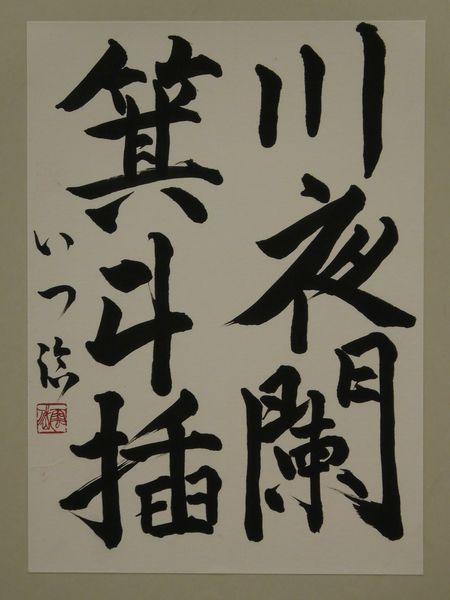 川夜闌
箕斗插
いつ臨